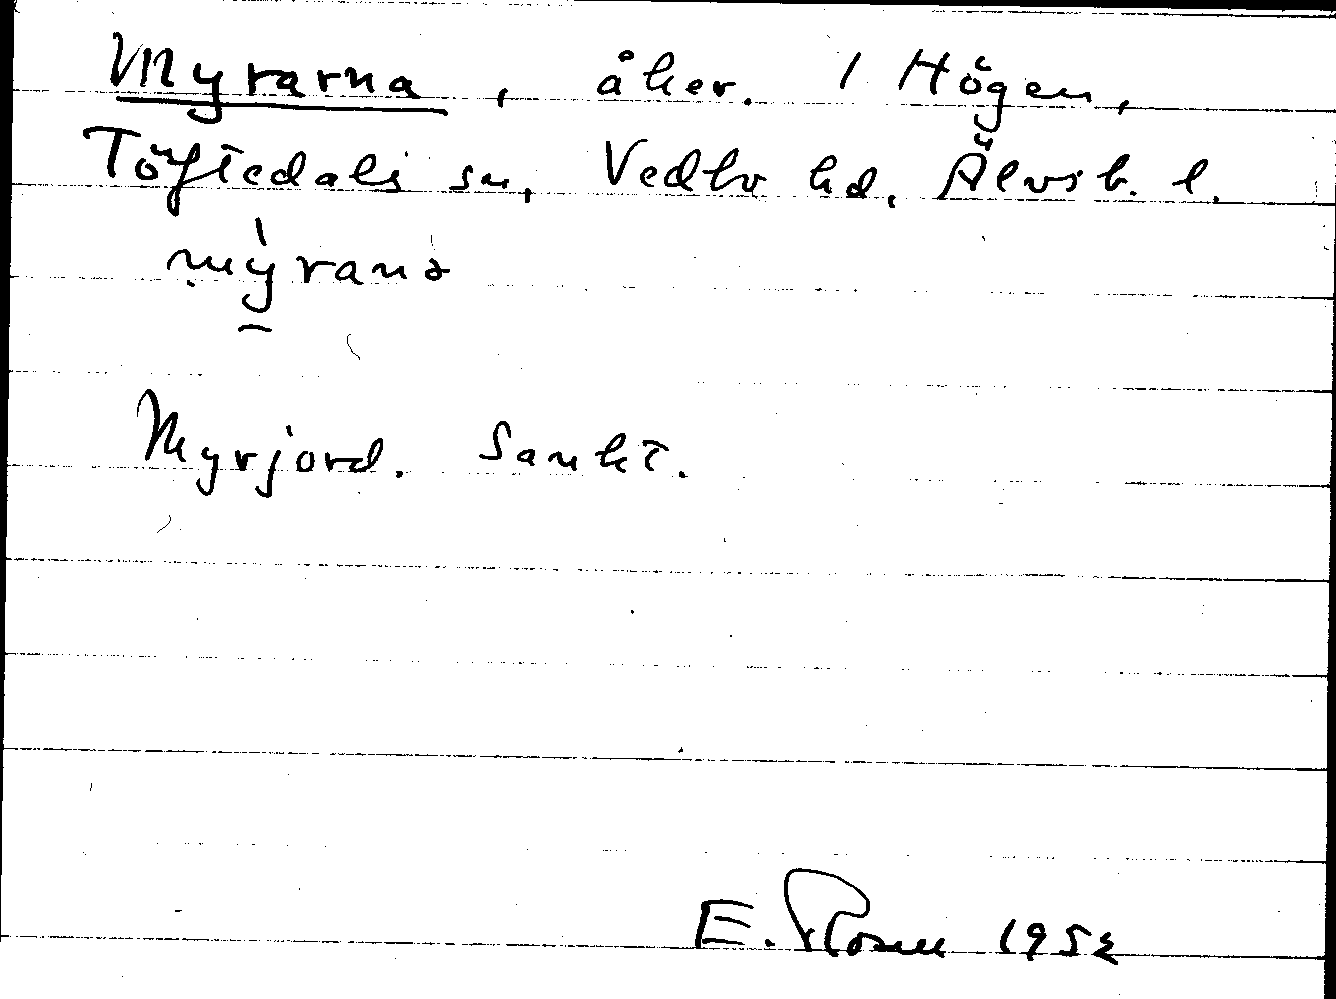 Myrarna, åker. 1 Högen,
Töftedals sn, Vedbo hd, Älvsb. l.
mỳ̱rana
Myrjord. Sankt.
E. Rosén 1952